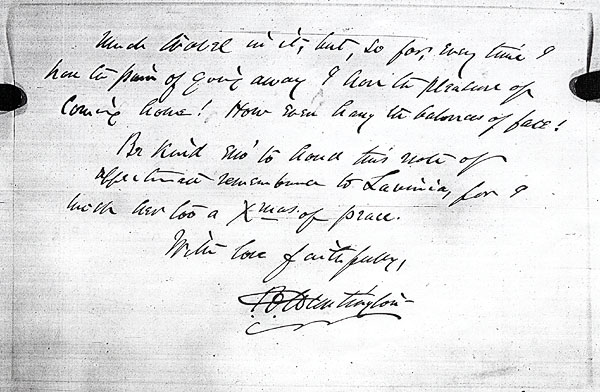 much travel in it, but, so far, every time I
have the pain of going away I have the pleasure of
coming home! How even hang the balances of fate!
Be kind eno' to hand this note of
affectionate remembrance to Lavinia, for I
wish her too a Xmas of peace.
With love faithfully,
Huntington